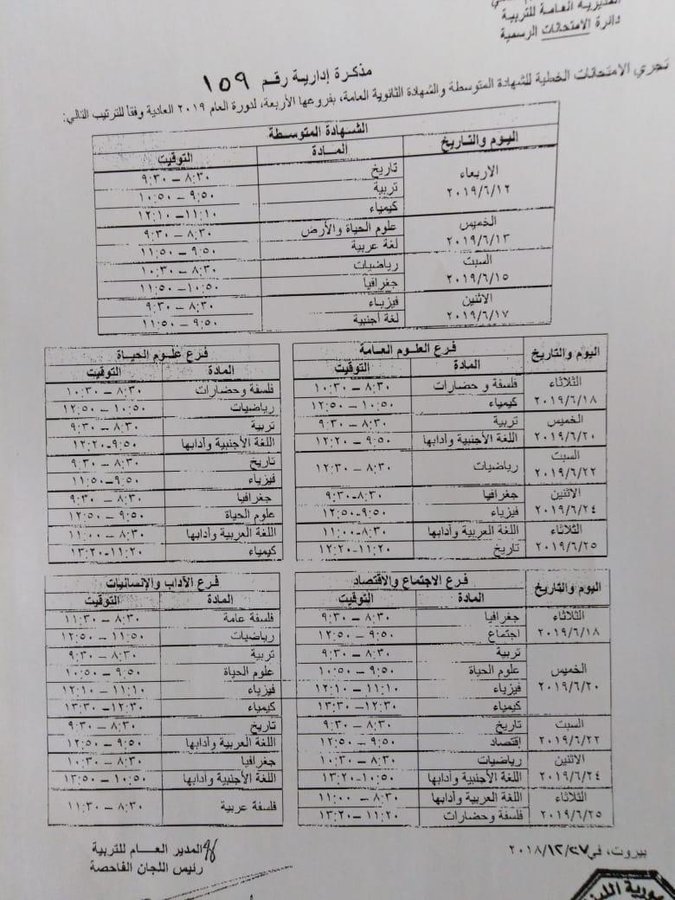 المديرية العامة للتربية
دائرة الامتحانات الرسمية
مذكرة إدارية رقم ١٥٩
تجري الامتحانات الخطية للشهادة المتوسطة والشهادة الثانوية العامة، بفروعها الأربعة، لدورة العام ٢٠١٩ العادية وفقاً للترتيب التالي:
اليوم والتاريخ الشهادة المتوسطة
المادة التوقيت
الاربعاء ٢٠١٩/٦/١٢ تاريخ ٨:٣٠ – ٩:٣٠
تربية ٩:٥٠ – ١٠:٥٠
كيمياء ١١:١٠ – ١٢:١٠
الخميس ٢٠١٩/٦/١٣ علوم الحياة والأرض ٨:٣٠ – ٩:٣٠
لغة عربية ٩:٥٠ – ١١:٥٠
السبت ٢٠١٩/٦/١٥ رياضيات ٨:٣٠ – ١٠:٣٠
جغرافيا ١٠:٥٠ – ١١:٥٠
الاثنين ٢٠١٩/٦/١٧ فيزياء ٨:٣٠ – ٩:٣٠
لغة أجنبية ٩:٥٠ – ١١:٥٠
اليوم والتاريخ فرع العلوم العامة فرع علوم الحياة
المادة التوقيت المادة التوقيت
الثلاثاء ٢٠١٩/٦/١٨ فلسفة و حضارات ٨:٣٠ – ١٠:٣٠ فلسفة و حضارات ٨:٣٠ – ١٠:٣٠
كيمياء ١٠:٥٠ – ١٢:٥٠ رياضيات ١٠:٥٠ – ١٢:٥٠
الخميس ٢٠١٩/٦/٢٠ تربية ٨:٣٠ – ٩:٣٠ تربية ٨:٣٠ – ٩:٣٠
اللغة الأجنبية وآدابها ٩:٥٠ – ١٢:٢٠ اللغة الأجنبية وآدابها ٩:٥٠-١٢:٢٠
السبت ٢٠١٩/٦/٢٢ رياضيات ٨:٣٠ – ١٢:٣٠ تاريخ ٨:٣٠ – ٩:٣٠
فيزياء ٩:٥٠-١١:٥٠
الاثنين ٢٠١٩/٦/٢٤ جغرافيا ٨:٣٠-٩:٣٠ جغرافيا ٨:٣٠ – ٩:٣٠
فيزياء ٩:٥٠-١٢:٥٠ علوم الحياة ٩:٥٠ – ١٢:٥٠
الثلاثاء ٢٠١٩/٦/٢٥ اللغة العربية وآدابها ٨:٣٠-١١:٠٠ اللغة العربية وآدابها ٨:٣٠ – ١١:٠٠
تاريخ ١١:٢٠-١٢:٢٠ كيمياء ١١:٢٠-١٣:٢٠
اليوم والتاريخ فرع الاجتماع والاقتصاد فرع الآداب والإنسانيات
المادة التوقيت المادة التوقيت
الثلاثاء ٢٠١٩/٦/١٨ جغرافيا ٨:٣٠ – ٩:٣٠ فلسفة عامة ٨:٣٠ – ١١:٣٠
اجتماع ٩:٥٠ – ١٢:٥٠ رياضيات ١١:٥٠ – ١٢:٥٠
الخميس ٢٠١٩/٦/٢٠ تربية ٨:٣٠ – ٩:٣٠ تربية ٨:٣٠ – ٩:٣٠
علوم الحياة ٩:٥٠ – ١٠:٥٠ علوم الحياة ٩:٥٠ – ١٠:٥٠
فيزياء ١١:١٠ – ١٢:١٠ فيزياء ١١:١٠ – ١٢:١٠
كيمياء ١٢:٣٠ – ١٣:٣٠ كيمياء ١٢:٣٠ – ١٣:٣٠
السبت ٢٠١٩/٦/٢٢ تاريخ ٨:٣٠ – ٩:٣٠ تاريخ ٨:٣٠ – ٩:٣٠
إقتصاد ٩:٥٠ – ١٢:٥٠ اللغة العربية وآدابها ٩:٥٠ – ١٢:٥٠
الاثنين ٢٠١٩/٦/٢٤ رياضيات ٨:٣٠ – ١٠:٣٠ جغرافيا ٨:٣٠ – ١٠:٣٠
اللغة الأجنبية وآدابها ١٠:٥٠-١٣:٢٠ اللغة الأجنبية وآدابها ١٠:٥٠ – ١٣:٥٠
الثلاثاء ٢٠١٩/٦/٢٥ اللغة العربية وآدابها ٨:٣٠ – ١١:٠٠ فلسفة عربية ٨:٣٠ – ١١:٣٠
فلسفة وحضارات ١١:٢٠ – ١٣:٢٠
بيروت، في ٢٠١٨/١٢/٢٧
المدير العام للتربية
رئيس اللجان الفاحصة